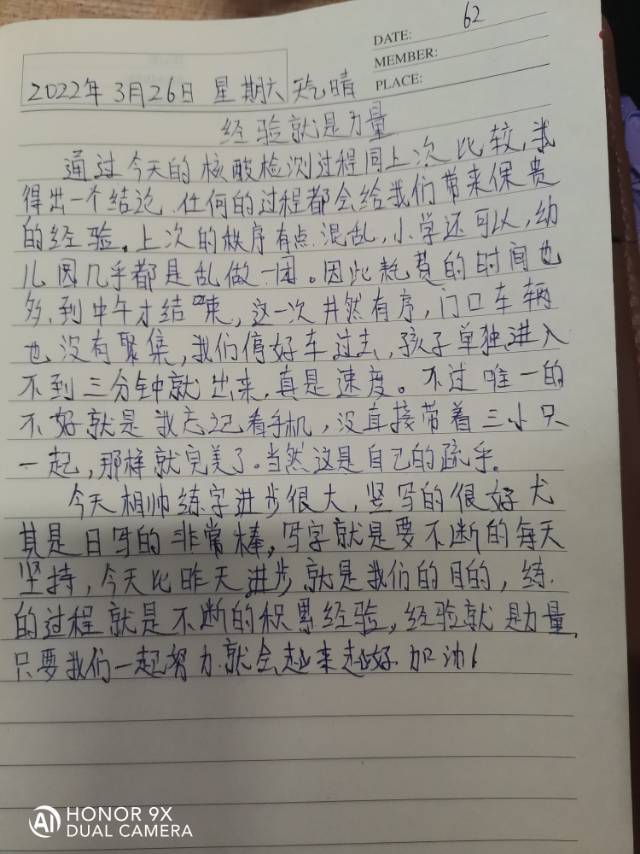 62
DATE:
MEMBER:
PLACE:
2022年3月26日 星期六 天气晴
经验就是力量
通过今天的核酸检测过程同上次比较,我
得出一个结论.任何的过程都会给我们带来保贵
的经验。上次的秩序有点混乱,小学还可以,幼
儿园几乎都是乱做一团。因此耗费的时间也
多.到中午才结束,这一次井然有序,门口车辆
也没有聚集,我们停好车过去,孩子单独进入
不到三分钟就出来,真是速度。不过唯一的
不好就是我忘记看手机,没直接带着三小只
一起,那样就完美了。当然这是自己的疏乎。
今天相帅练字进步很大,竖写的很好尤
其是日写的非常棒,写字就是要不断的每天
坚持,今天比昨天进步就是我们的目的,练.
的过程就是不断的积累经验,经验就是力量,
只要我们一起努力就会越来越好.加油!
HONOR 9X
AI DUAL CAMERA